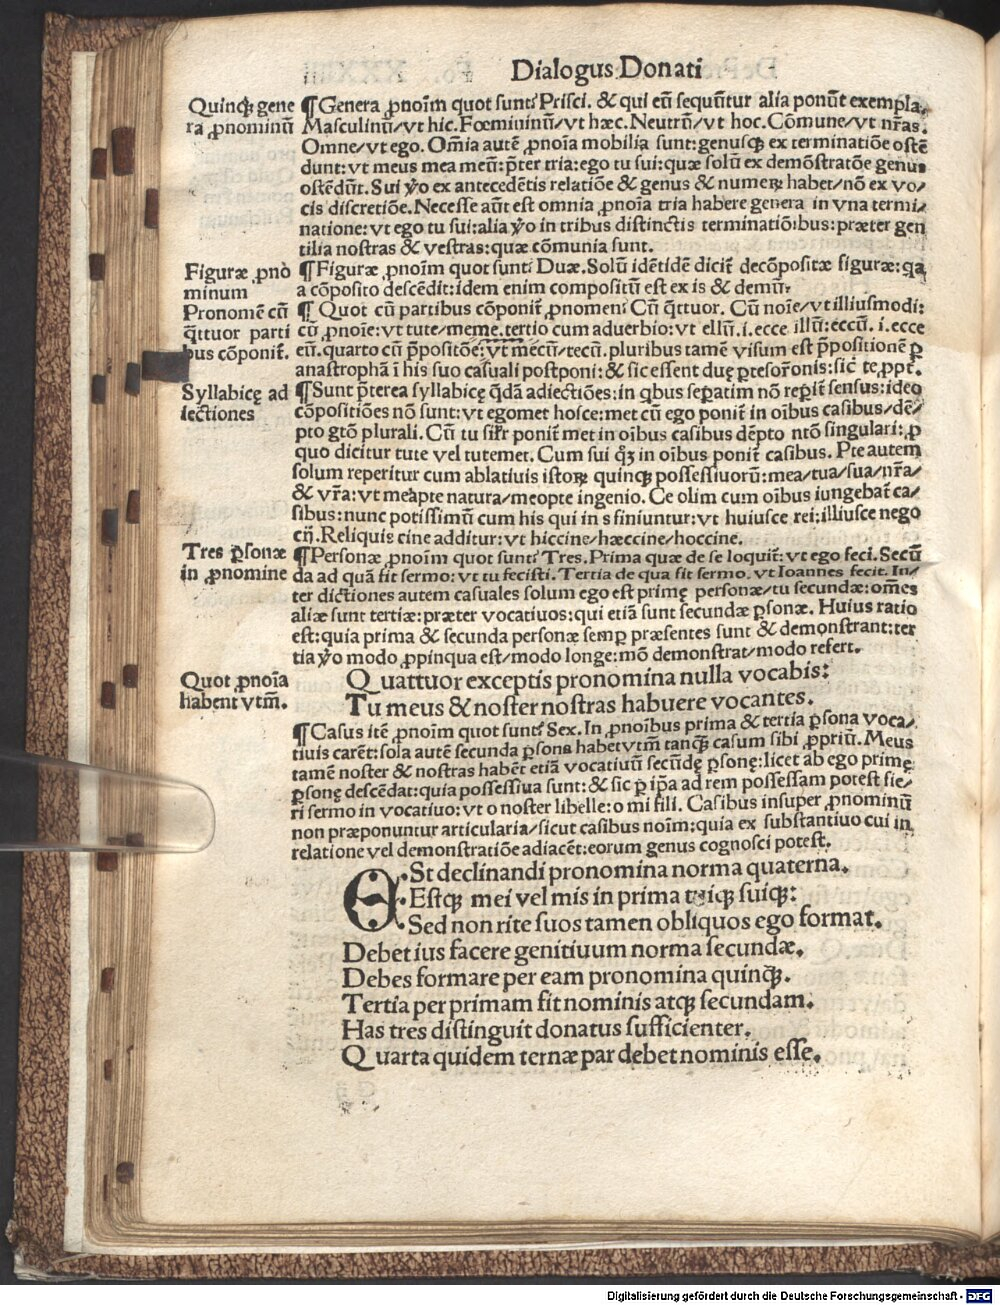 Dialogus Donati
Quinqꝫ gene
ra ꝓnominū
¶Genera ꝓnoīm quot sunt? Prisci. & qui eū sequūtur alia ponūt exempla.
Masculinū/vt hic. Fœmininū/vt hæc. Neutrū/vt hoc. Cōmune/vt nr̄as.
Omne/vt ego. Om̄ia autē ꝓnoīa mobilia sunt: genusqꝫ ex terminatiōe ostē
dunt: vt meus mea meū: p̄ter tria: ego tu sui: quæ solū ex demōstratōe genus
ostēdūt. Sui ꝟo ex antecedētis relatiōe & genus & numeꝝ habet/nō ex vo/
cis discretiōe. Necesse aūt est omnia ꝓnoīa tria habere genera in vna termi/
natione: vt ego tu sui: alia ꝟo in tribus distinctis terminatiōibus: præter gen
tilia nostras & vestras: quæ cōmunia sunt.
Figuræ ꝓno
minum
¶Figuræ ꝓnoīm quot sunt? Duæ. Solū idētidē dicit̄ decōpositæ figuræ: qa
a cōposito descēdit: idem enim compositū est ex is & demū.
Pronomē cū
q̄ttuor parti
bus cōponit̄.
¶ Quot cū partibus cōponit̄ ꝓnomen? Cū q̄ttuor. Cū noīe/vt illiusmodi:
cū ꝓnoīe: vt tute/meme. tertio cum aduerbio: vt ellū .i. ecce illū: eccū .i. ecce
eū. quarto cū p̄positōe: vt mecū/tecū. pluribus tamē visum est p̄positionē ꝑ
anastropham ī his suo casuali postponi: & sic essent duę p̄tes oro̅nis: sic te ꝓpt̄.
Syllabicę ad
iectiones
¶Sunt p̄terea syllabicę q̄dā adiectiōes: in qbus seꝑatim nō reꝑit̄ sensus: ideo
cōpositiōes nō sunt: vt egomet hosce: met cū ego ponit̄ in oībus casibus/dē/
pto gtō plurali. Cū tu sil̄r ponit̄ met in oībus casibus dēpto ntō singulari: ꝓ
quo dicitur tute vel tutemet. Cum sui qꝫ in oībus ponit̄ casibus. Pte autem
solum reperitur cum ablatiuis istoꝝ quinqꝫ possessiuorū: mea/tua/sua/nr̄a/
& vr̄a: vt meapte natura/meopte ingenio. Ce olim cum oībus iungebat̄ ca/
sibus: nunc potissimū cum his qui in s finiuntur: vt huiusce rei: illiusce nego
cij. Reliquis cine additur: vt hiccine/hæccine/hoccine.
Tres ꝑsonæ
in ꝓnomine
¶Personæ ꝓnoīm quot sunt? Tres. Prima quæ de se loquit̄: vt ego feci. Secū
da ad quā fit sermo: vt tu fecisti. Tertia de qua fit sermo. vt Ioannes fecit. In/
ter dictiones autem casuales solum ego est primę personæ/tu secundæ: om̄es
aliæ sunt tertiæ: præter vocatiuos: qui etiā sunt secundæ ꝑsonæ. Huius ratio
est: quia prima & secunda personæ semꝑ præsentes sunt & demonstrant: ter
tia ꝟo modo ꝓpinqua est/modo longe: mō demonstrat/modo refert.
Quot ꝓnoīa
habent vtm̄.
Quattuor exceptis pronomina nulla vocabis:
Tu meus & noster nostras habuere vocantes.
¶Casus itē ꝓnoīm quot sunt? Sex. In ꝓnoībus prima & tertia ꝑsona voca/
tiuis carēt: sola autē secunda ꝑsona habet vtm̄ tanqꝫ casum sibi ꝓpriū. Meus
tamē noster & nostras habēt etiā vocatiuū secūdę ꝑsonę: licet ab ego primę
ꝑsonę descēdat: quia possessiua sunt: & sic ꝑ ip̄a ad rem possessam potest fie/
ri sermo in vocatiuo: vt o noster libelle: o mi fili. Casibus insuper ꝓnominū
non præponuntur articularia/sicut casibus noīm: quia ex substantiuo cui in
relatione vel demonstratiōe adiacēt: eorum genus cognosci potest.
ESt declinandi pronomina norma quaterna.
Estqꝫ mei vel mis in prima tuiqꝫ suiqꝫ:
Sed non rite suos tamen obliquos ego format.
Debet ius facere genitiuum norma secundæ.
Debes formare per eam pronomina quinqꝫ.
Tertia per primam fit nominis atqꝫ secundam.
Has tres distinguit donatus sufficienter.
Quarta quidem ternæ par debet nominis esse.
Digitalisierung gefördert durch die Deutsche Forschungsgemeinschaft - DFG